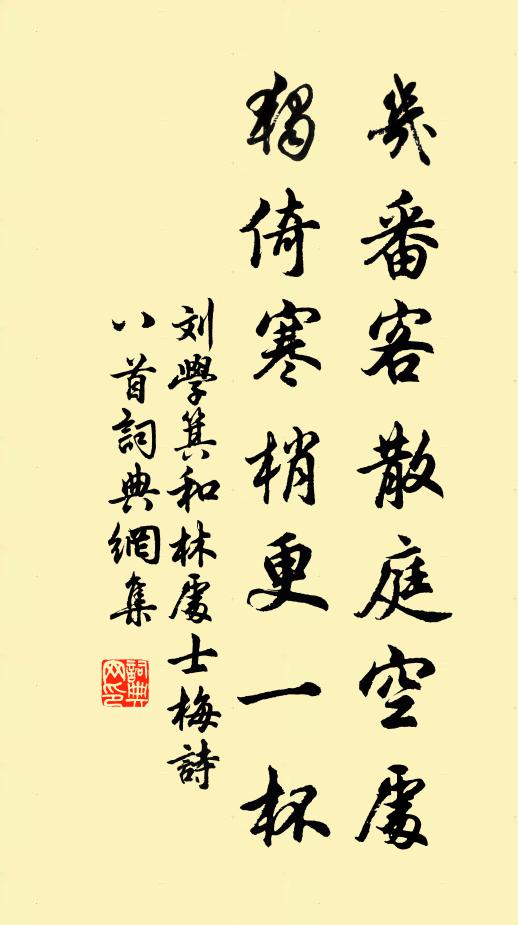 幾番客散庭空處
獨倚寒梢更一杯
刘學箕和林處士梅詩
八首詞典網集
詞典网印